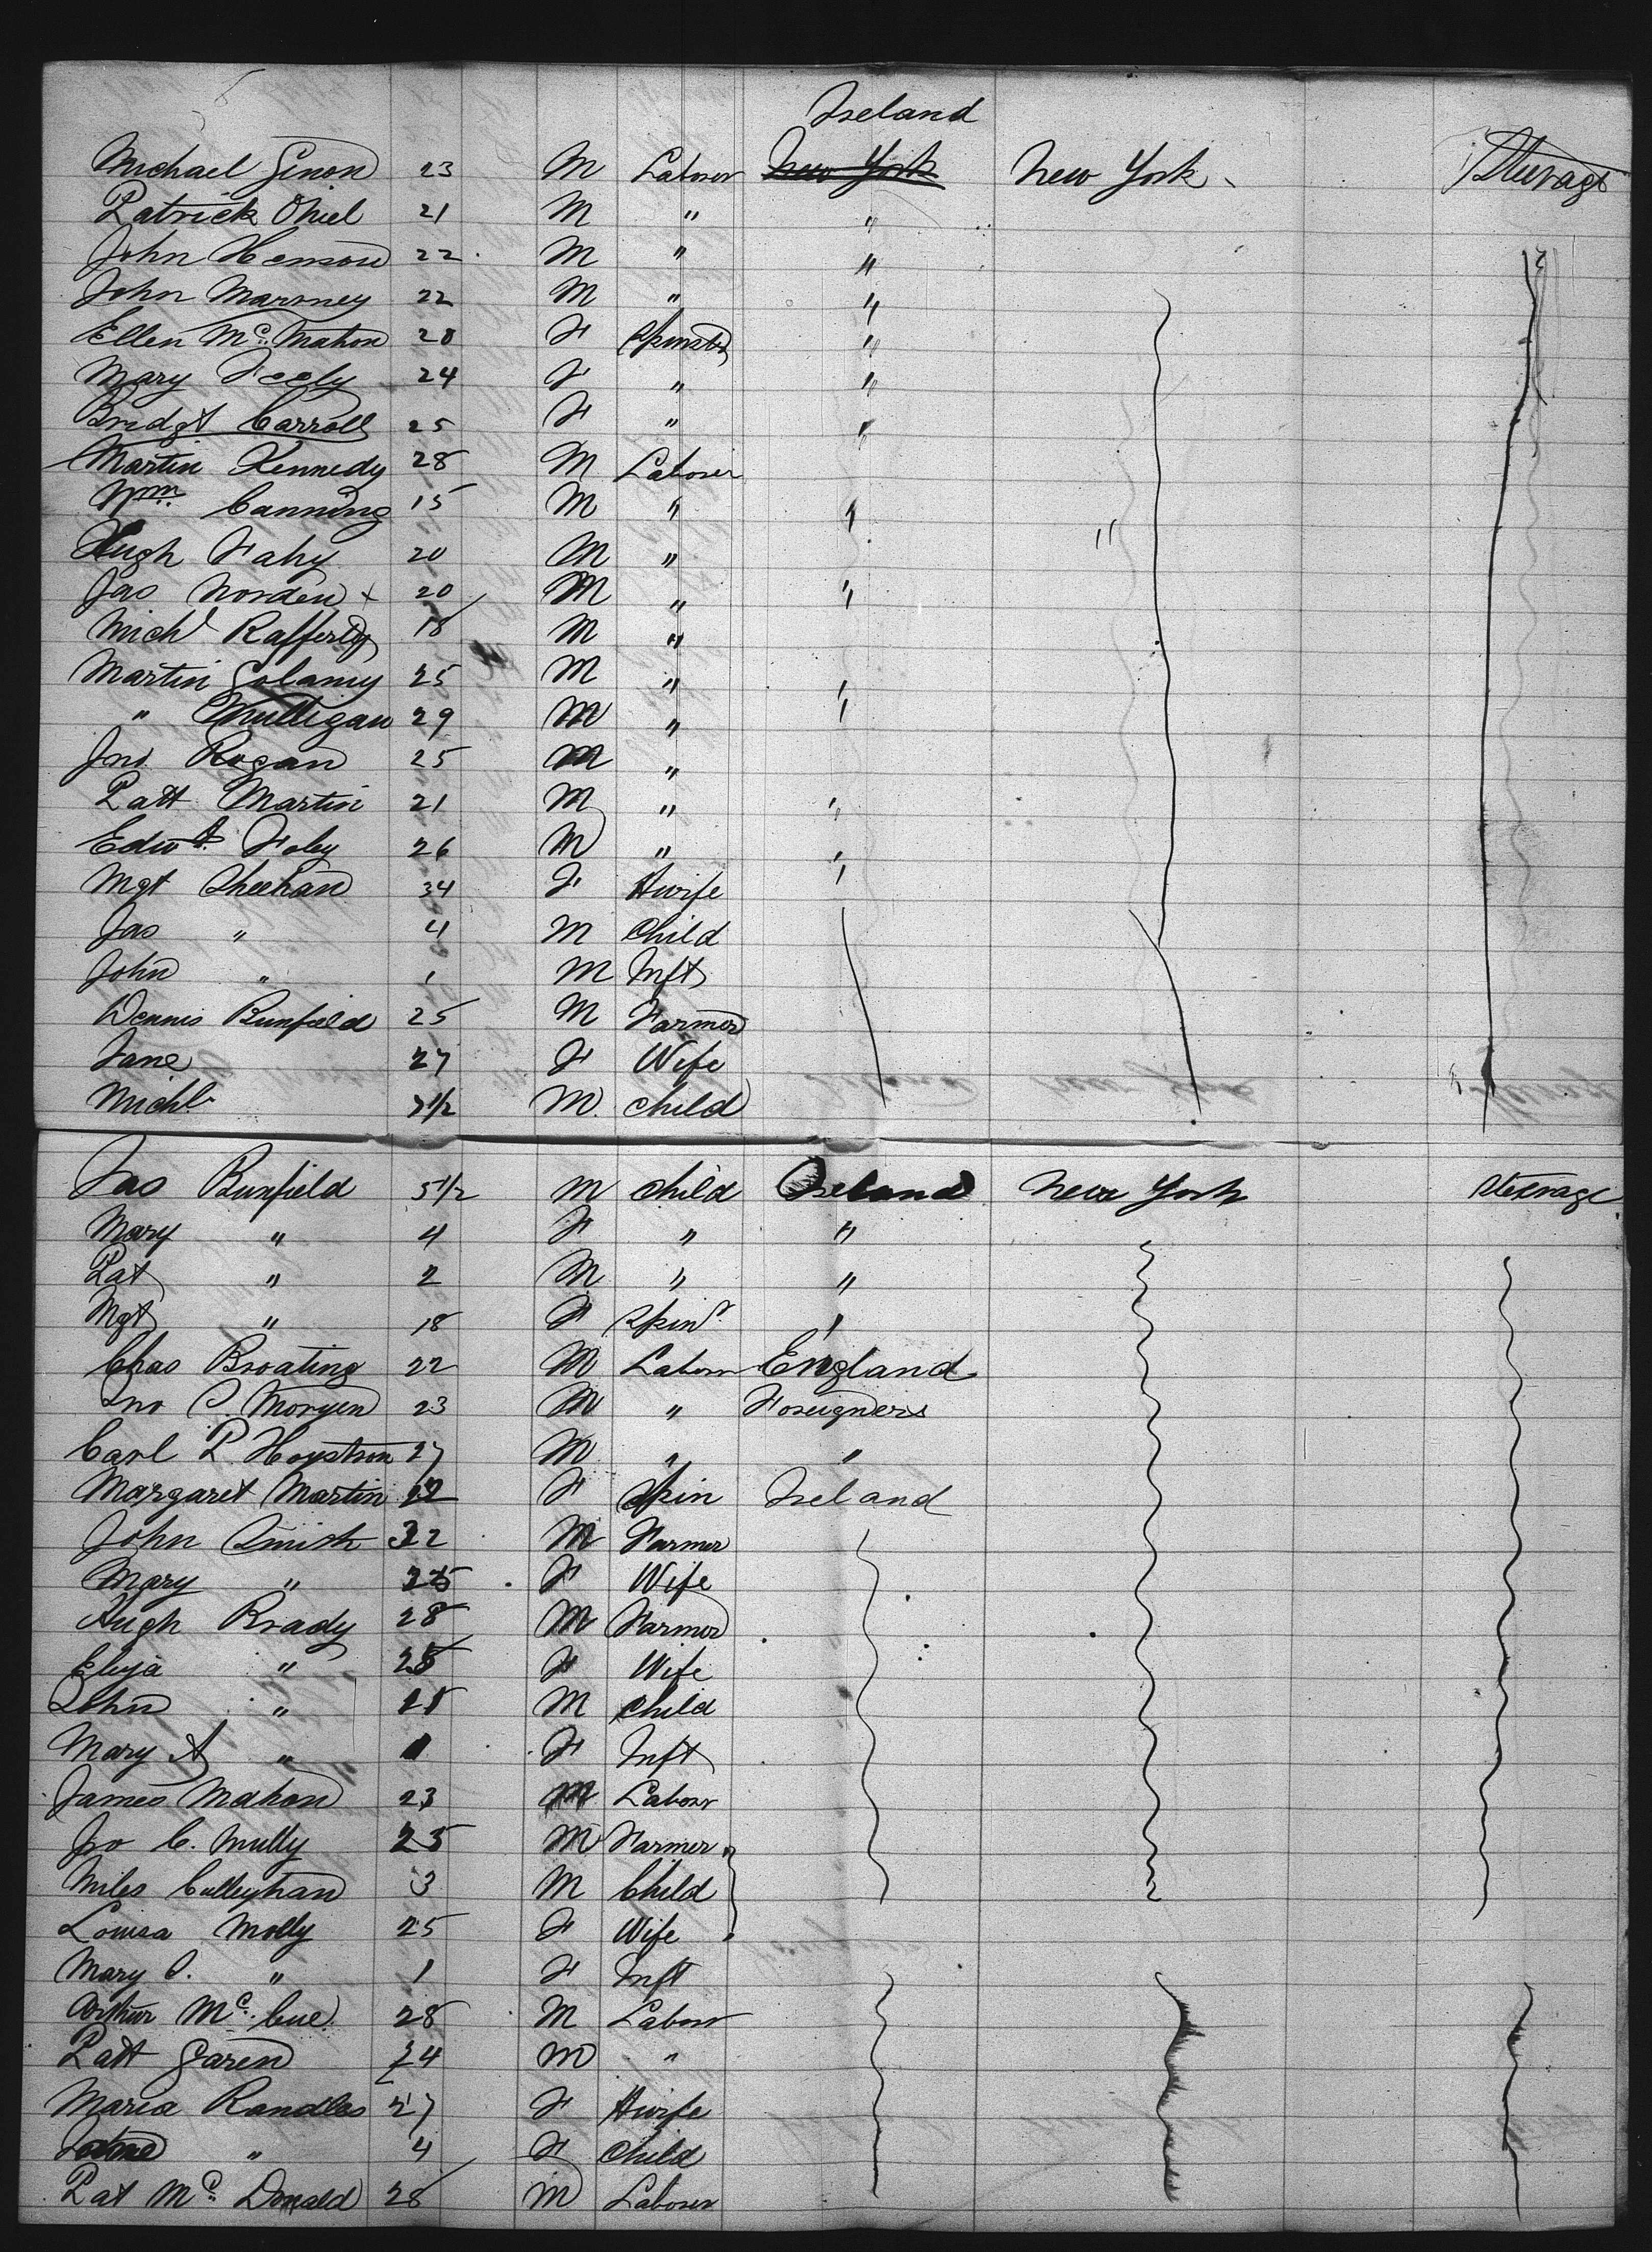 Ireland
Michael Ginon 23 M Laborer New York New York Steerage
Patrick Ohiel 21 M " "
John Henson 22 M " "
John Maroney 22 M " "
Ellen Mc Mahon 20 F Spinster "
Mary Feely 24 F " "
Bridgt Carroll 25 F " "
Martin Kennedy 28 M Laborer
Wm Canning 15 M " " "
Hugh Fahy 20 M "
Jas Norden + 20 M " "
Michl Rafferty 18 M "
Martin 25 M " "
" Mulligan 29 M " "
Jno Rogan 25 M "
Patt Martin 21 M " "
Edwd Foley 26 M " "
Mgt Sheehan 34 F Hwife "
Jas " 4 M Child
John " 1 M Inft
Dennis Bunfield 25 M Farmer
Jane 27 F Wife
Michl 7 1/2 M child
Jas Bunfield 5 1/2 M child Ireland New York Steerage
Mary " 4 F " "
Pat " 2 M " "
Mgt " 18 F Spinr "
Chas Broating 22 M Laborer England
Jno C. Morgen 23 M " Foreigners
Carl P. Hoystrom 27 M " "
Margaret Martin 22 F Spin Ireland
John Smith 32 M Farmer
Mary " F Wife
Hugh Brady 28 M Farmer
" 28 F Wife
John " M child
Mary A " 1 F Inft
James Mahon 23 M Labour
Jno C. Mully 25 M Farmer
Miles Culleyhan 3 M Child
Louisa Molly 25 F Wife
Mary S. " 1 F Inft
Arthur Mc Cue 28 M Labour
Patt Garen 24 M "
Maria Randles 27 F Hwife
" 4 F child
Pat Mc Donald 28 M Laborer